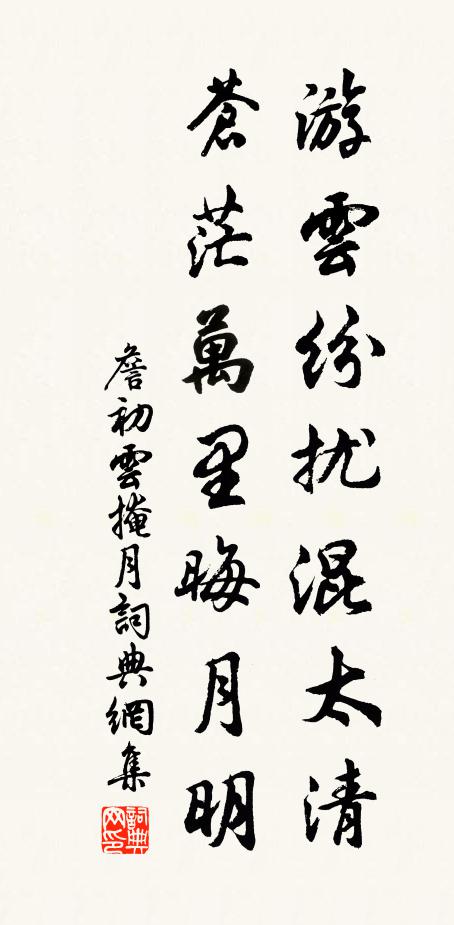 游雲紛扰混太清
蒼茫萬里晦月明
詹初雲掩月詞典網集
詞典网印